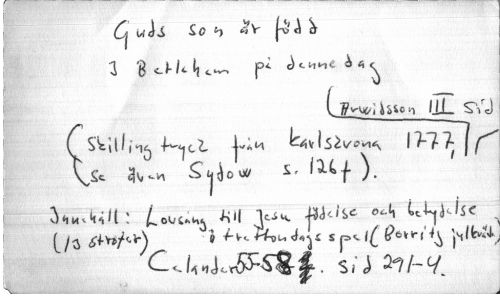 Guds son är född
I Betlehem på denne dag
(Arwidsson III sid
(Skilling tryck från Karlskrona 1777,
(se även Sydow s. 126f).
Innehåll: Lovsång till Jesu födelse och betydelse
(13 strofer) i trettondagsspel (Borrits julkväde)
Celander 55-58 sid 291-4.